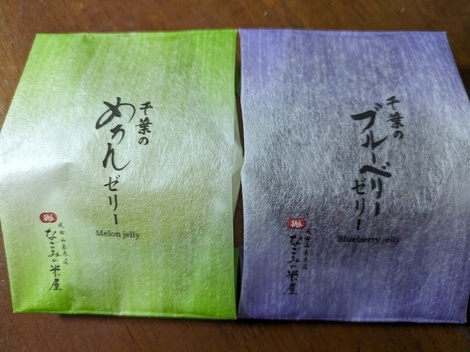 千葉の
めろん
ゼリー
Melon jelly
成田山表参道
なごみの米屋
千葉の
ブルーベリー
ゼリー
Blueberry jelly
成田山表参道
なごみの米屋